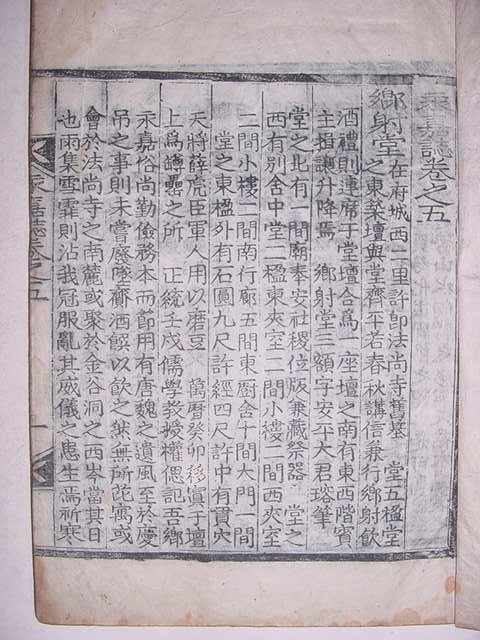 永嘉誌卷之五
鄕射堂在府城西二里許卽法尙寺舊基 堂五楹堂
之東築壇與堂齊平若春秋講信兼行鄕射飮
酒禮則連席于堂壇合爲一座壇之南有東西階賓
主揖讓升降焉 鄕射堂三額字安平大君瑢筆
堂之北有一間廟奉安社稷位版兼藏祭器 堂之
西有別舍中堂二楹東夾室二間小樓二間西夾室
二間小樓二間南行廊五間東廚舍十間大門一間
堂之東楹外有石圓九尺許經四尺許中有貫穴
天將薛虎臣軍人用以磨豆 萬曆癸卯移實于壇
上爲罇罍之所 正統壬戌儒學敎授權偲記吾鄕
永嘉俗尙勤儉務本而節用有唐魏之遺風至於慶
吊之事則未嘗廢墜齎酒餟以飮之然無所芘寓或
會於法尙寺之南麓或聚於金谷洞之西岑當其日
也雨集雪霏則沾我冠服亂其威儀之患生焉祈寒
永嘉誌卷之五
一